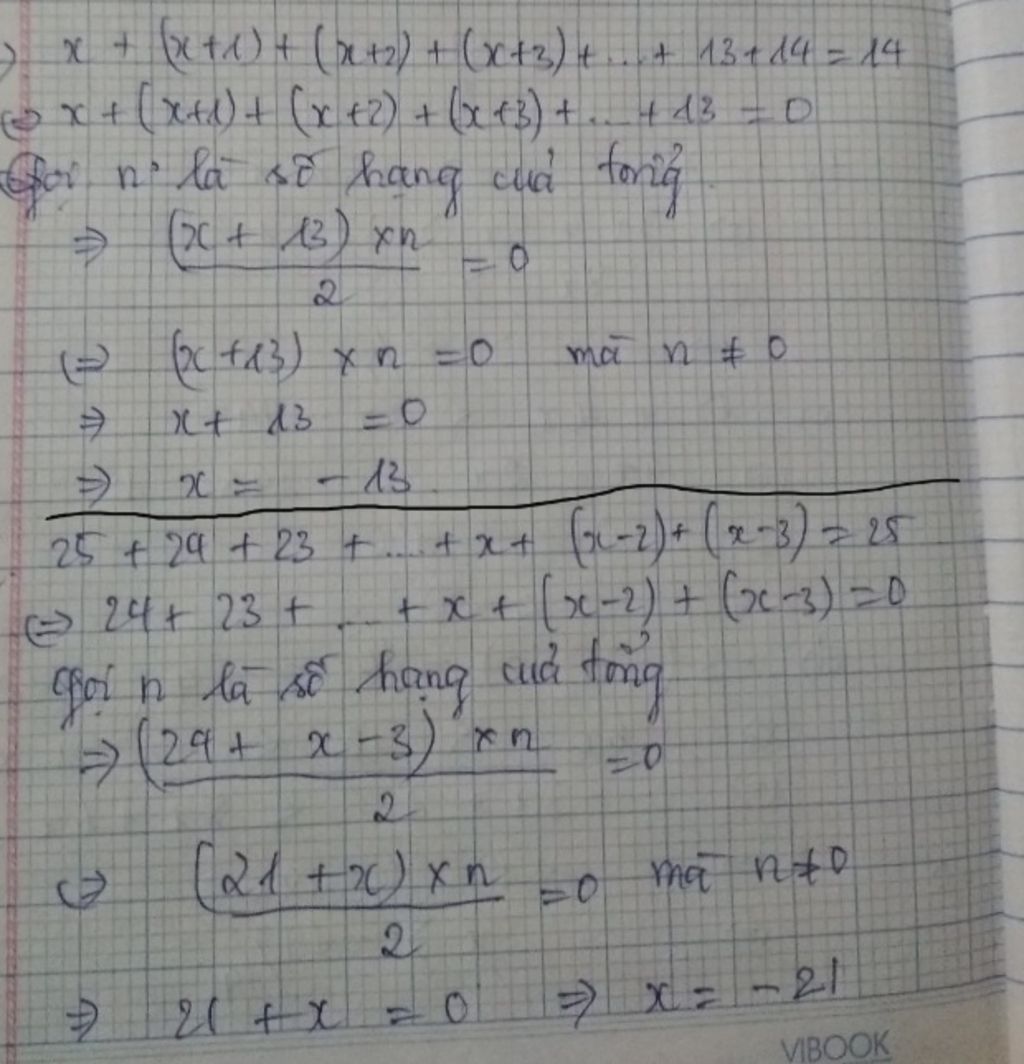 x + (x+1) + (x+2) + (x+3) + ... + 13+14 = 14
⇔ x + (x+1) + (x+2) + (x+3) + ... + 13 = 0
Gọi n là số hạng của tổng
⇒ (x + 13) × n / 2 = 0
⇔ (x +13) × n = 0 mà n ≠ 0
⇒ x + 13 = 0
⇒ x = - 13
25 + 24 + 23 + ... + x + (x-2) + (x-3) = 25
⇔ 24 + 23 + ... + x + (x-2) + (x-3) = 0
Gọi n là số hạng của tổng
⇒ (24 + x - 3) × n / 2 = 0
⇔ (21 + x) × n / 2 = 0 mà n ≠ 0
⇒ 21 + x = 0 ⇒ x = - 21
VIBOOK